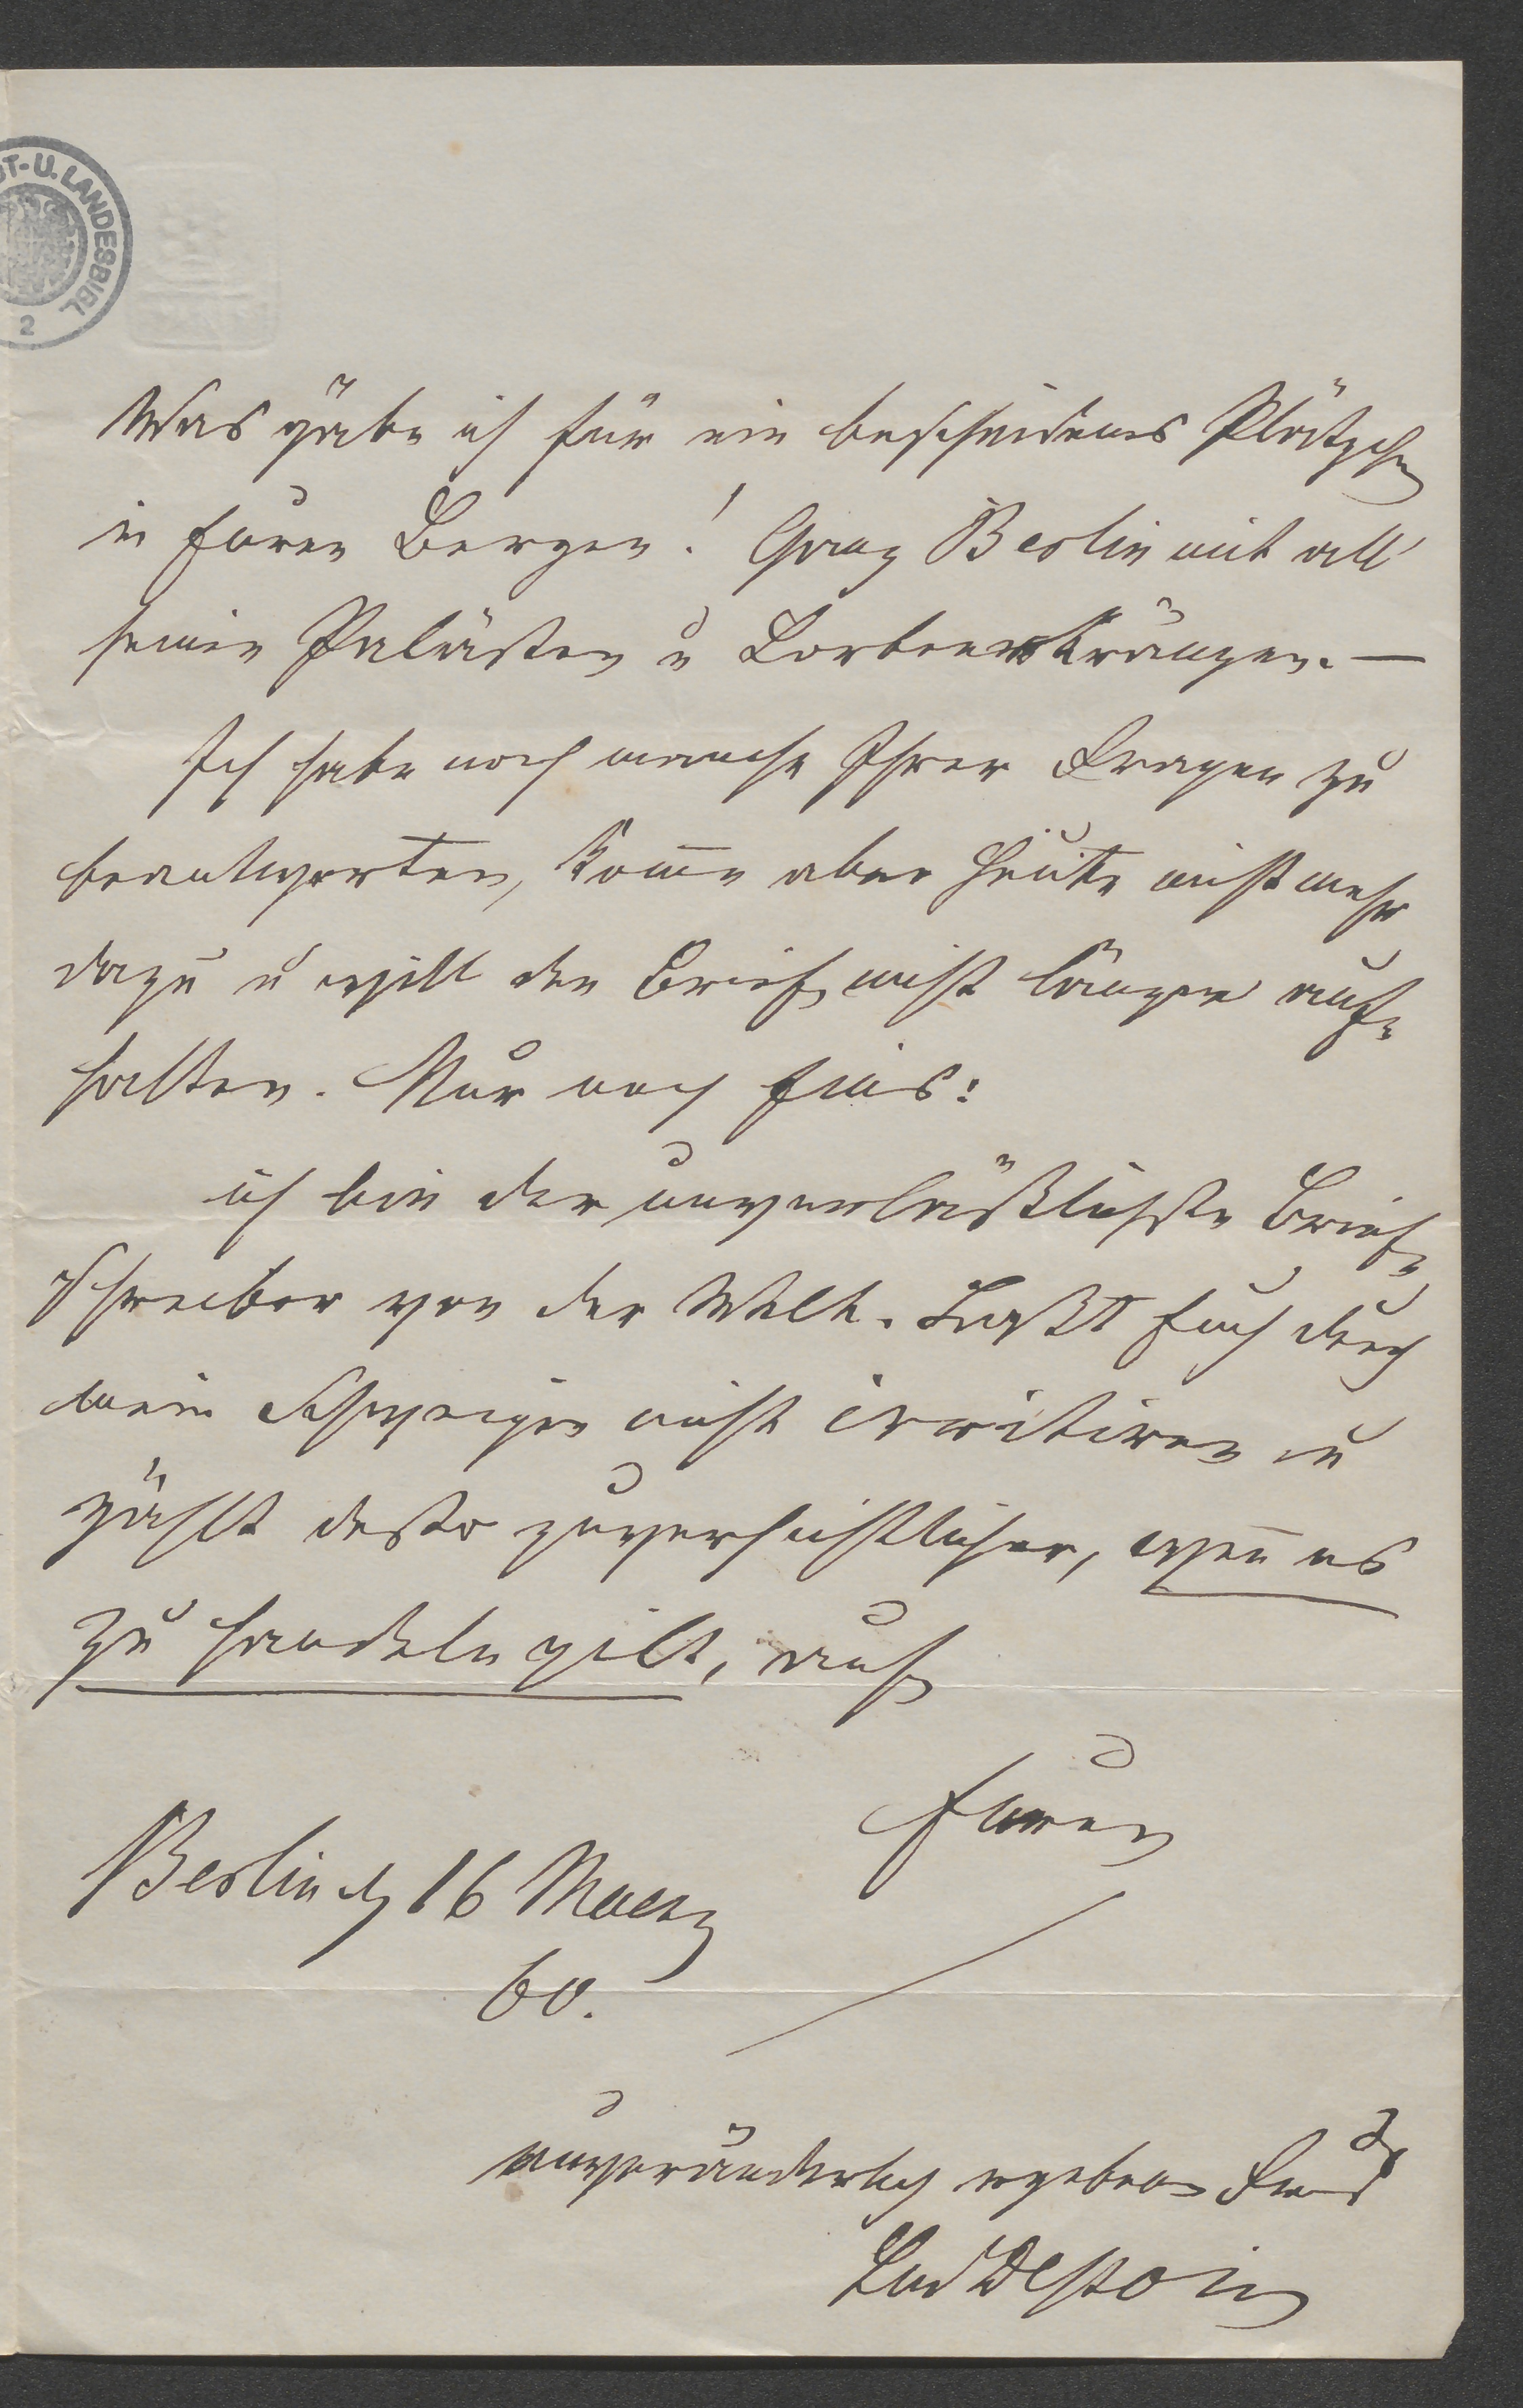 DT-U. LANDESBIBL
2
Was gäbe ich für ein bescheidenes Plätzchen
in Euren Bergen! Ganz Berlin mit all'
seinen Palästen u Lorbeerkränzen. —
Ich habe noch manche Ihrer Fragen zu
beantworten, kom̄e aber heute nicht mehr
dazu u will den Brief nicht länger auf-
halten. Nur noch Eins:
ich bin der unverläßlichste Brief-
schreiber von der Welt. Laßt Euch durch
mein Schweigen nicht irritiren u
zählt desto zuversichtlicher, wen̄ es
zu handeln gilt, auf
Euren
Berlin d 16 Maerz
60.
unveränderlich ergebenen Freund